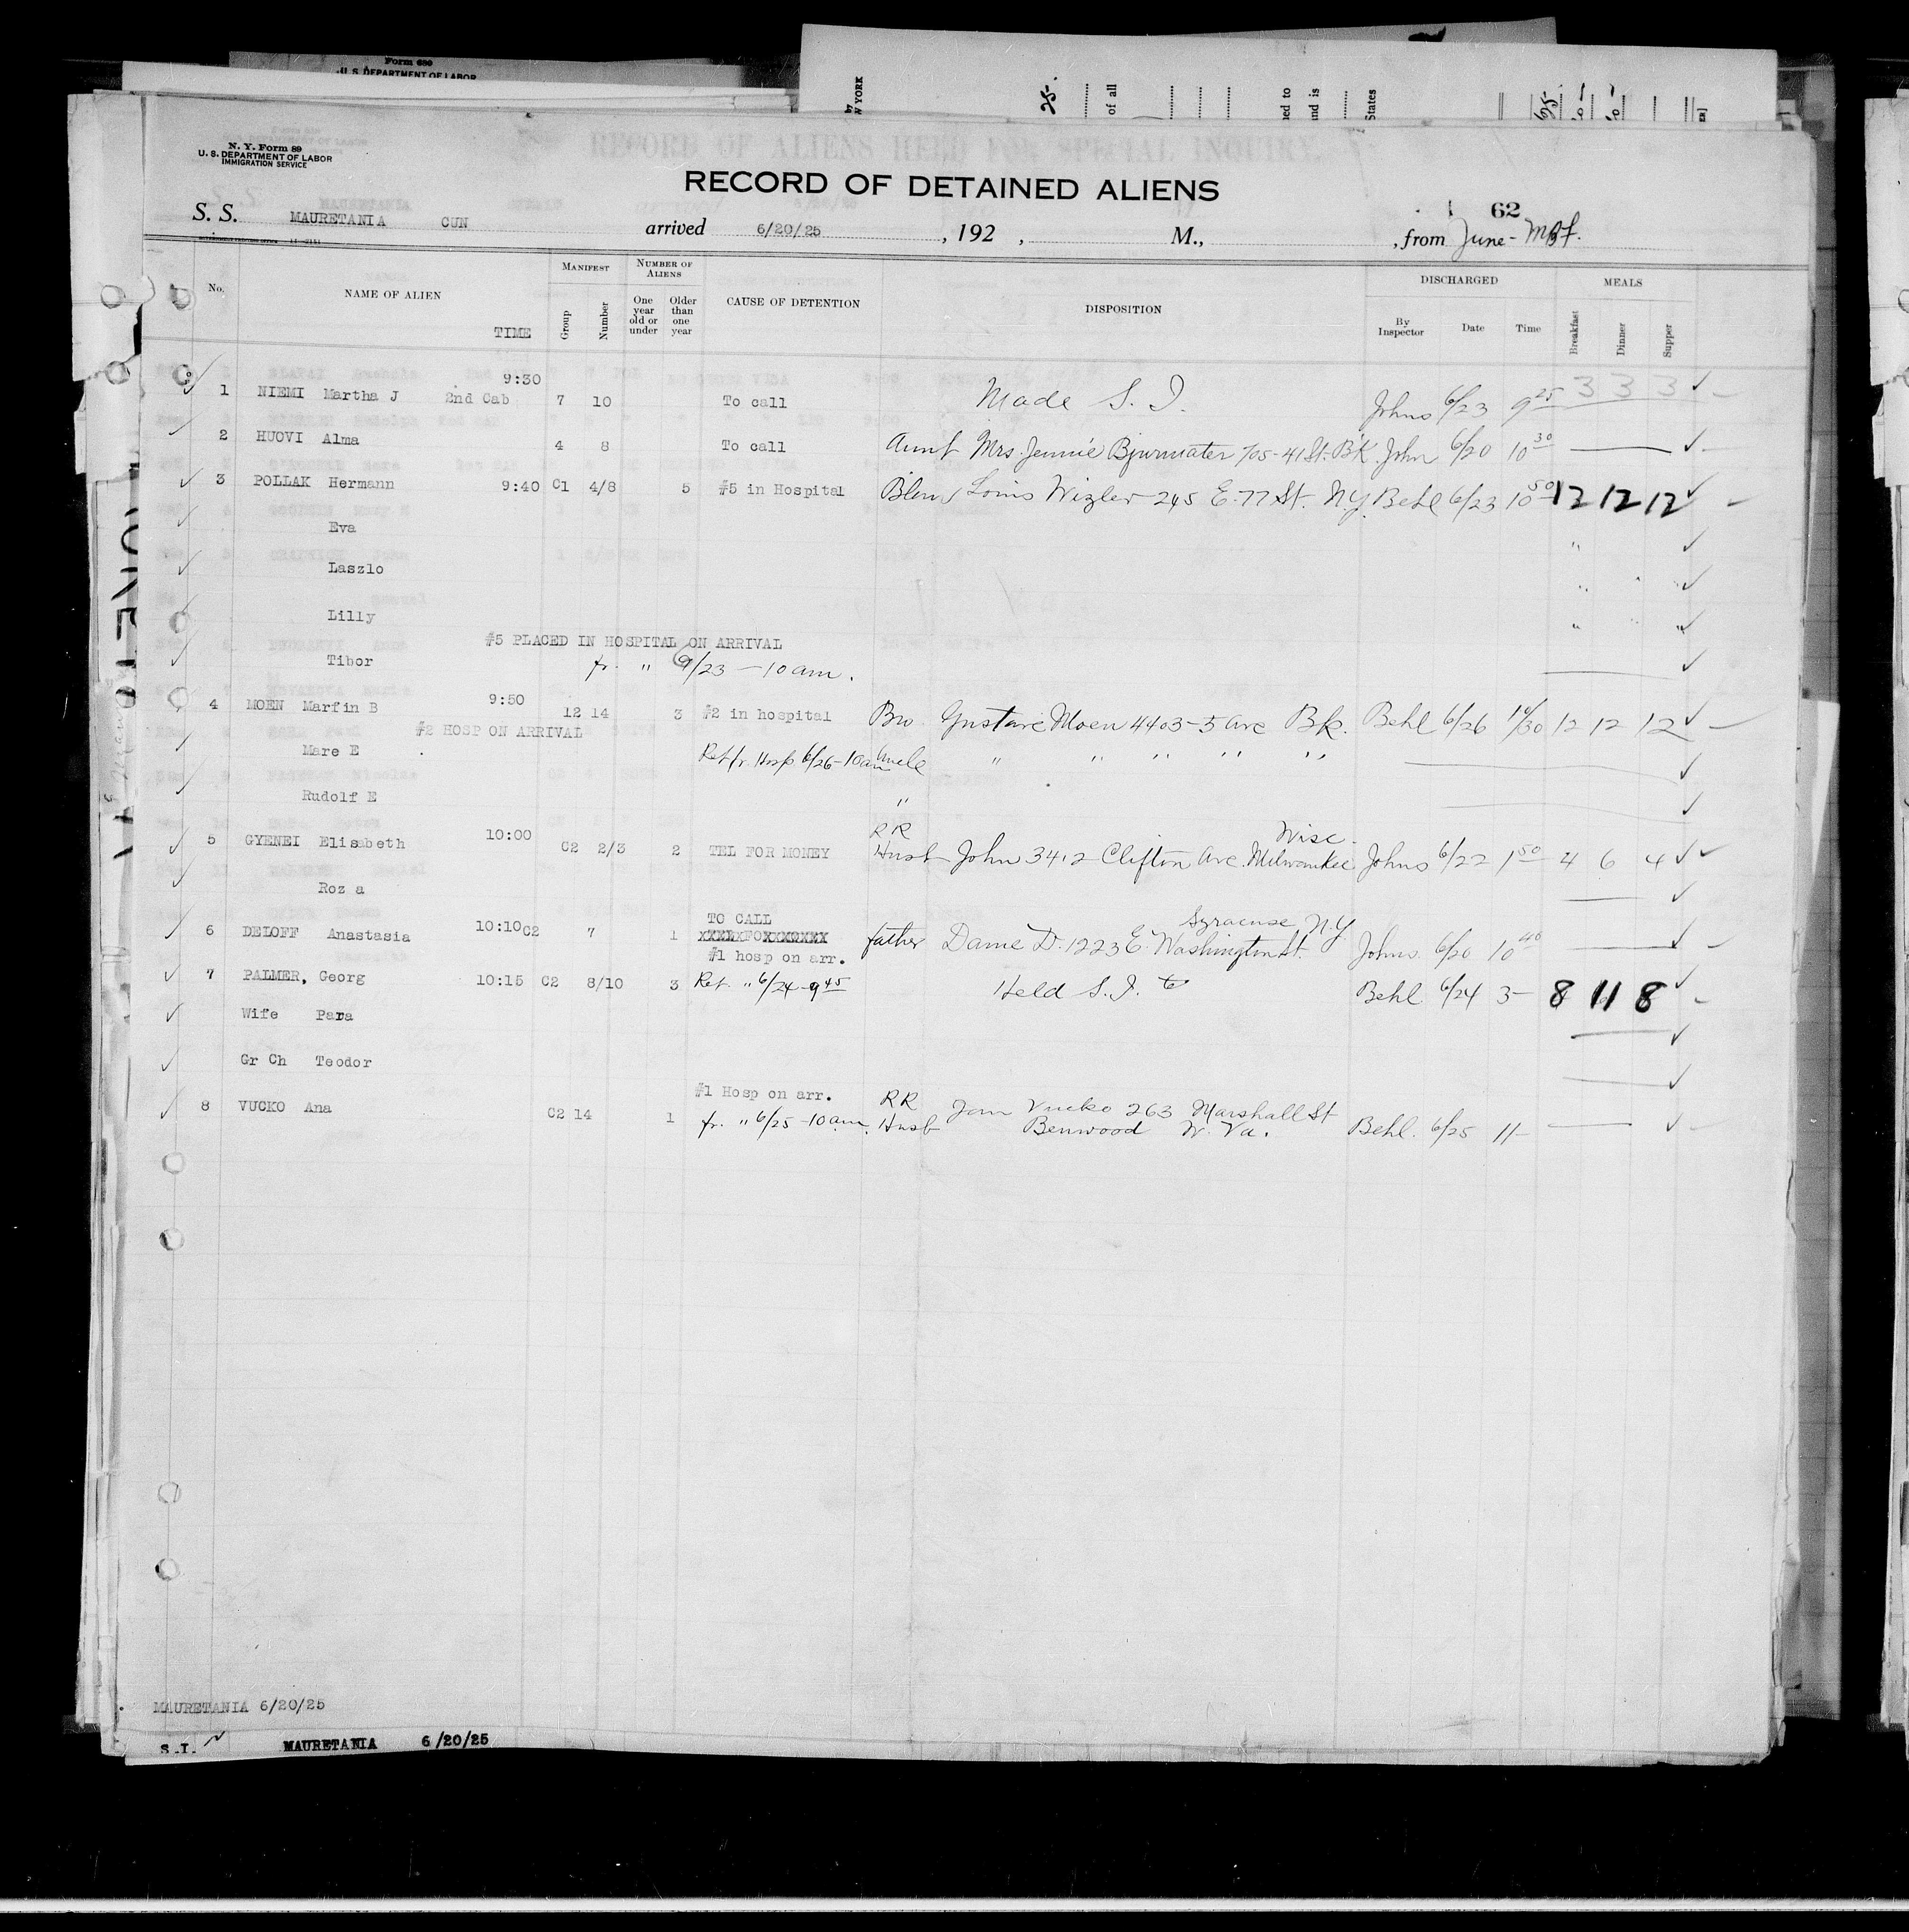 Form 680
U. S. DEPARTMENT OF LABOR
W YORK
25-
of all
and is
States
N. Y. Form 89
U. S. DEPARTMENT OF LABOR
IMMIGRATION SERVICE
RECORD OF ALIENS HELD FOR SPECIAL INQUIRY.
RECORD OF DETAINED ALIENS
62
S. S. MAURETANIA CUN arrived 6/20/25 , 192 , M., , from June-
No. NAME OF ALIEN TIME MANIFEST Group Number NUMBER OF ALIENS One year old or under Older than one year CAUSE OF DETENTION DISPOSITION DISCHARGED By Inspector Date Time MEALS Breakfast Dinner Supper
9:30
1 NIEMI Martha J 2nd Cab 7 10 To call Made S. I. Johns 6/23 9 25 3 3 3
2 HUOVI Alma 4 8 To call Aunt Mrs. Jennie 705-41 St. BK John 6/20 10 30
3 POLLAK Hermann 9:40 C1 4/8 5 #5 in Hospital Louis Wizler 245 E-77 St. N.Y. Behl 6/23 10 50 12 12 12
Eva "
Laszlo "
Lilly "
#5 PLACED IN HOSPITAL ON ARRIVAL
Tibor fr. " 6/23 - 10 am.
9:50
4 MOEN Marfin B 12 14 3 #2 in hospital Bro. Gustave Moen 4403-5 Ave Bk. Behl 6/26 12 12 12
#2 HOSP ON ARRIVAL
Mare E Ret fr. Hosp 6/26-10 am Uncle " " " " "
Rudolf E "
RR Wisc.
5 GYENEI Elisabeth 10:00 C2 2/3 2 TEL FOR MONEY Husb John 3412 Clifton Ave. Milwaukee Johns 6/22 1 50 4 6 4
Roz a
TO CALL Syracuse N.Y.
6 DELOFF Anastasia 10:10 C2 7 1 father Dame D. 1223 E. Washington St. Johns 6/20 10 40
#1 hosp on arr.
7 PALMER, Georg 10:15 C2 8/10 3 Ret. " 6/24-9 45 Held S. I. Behl 6/24 3- 8 11 8
Wife Para
Gr Ch Teodor
#1 Hosp on arr. RR Vucko 263 Marshall St
8 VUCKO Ana C2 14 1 fr. " 6/25-10 am. Husb Benwood W. Va. Behl. 6/25 11-
MAURETANIA 6/20/25
S.I. MAURETANIA 6/20/25